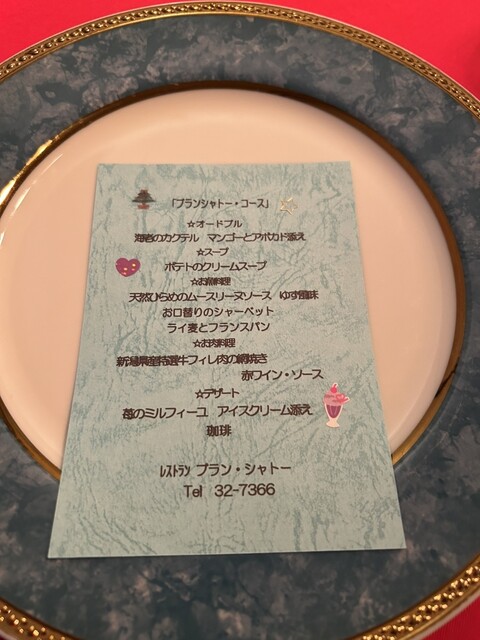 「ブランシャトー・コース」
☆オードブル
海老のカクテル マンゴーとアボカド添え
☆スープ
ポテトのクリームスープ
☆お魚料理
天然ひらめのムースリーヌソース ゆず風味
お口替りのシャーベット
ライ麦とフランスパン
☆お肉料理
新潟県産特選牛フィレ肉の網焼き
赤ワイン・ソース
☆デザート
苺のミルフィーユ アイスクリーム添え
珈琲
ﾚｽﾄﾗﾝ ブラン・シャトー
Tel 32-7366